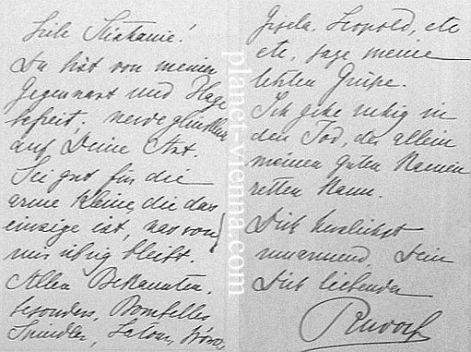 Liebe Stephanie!
Du bist von meiner
Gegenwart und Plage
befreit; werde glücklich
auf Deine Art.
Sei gut für die
arme Kleine, die das
einzige ist, was von
mir übrig bleibt.
Allen Bekannten,
besonders, Bombelles,
Spindler, Latour, Wowo,
Gisela, Leopold, etc
etc, sage meine
letzten Grüße.
Ich gehe ruhig in
den Tod, der allein
meinen guten Namen
retten kann.
Dich herzlichst
umarmend, Dein
Dich liebender
Rudolf
planet-vienna.com